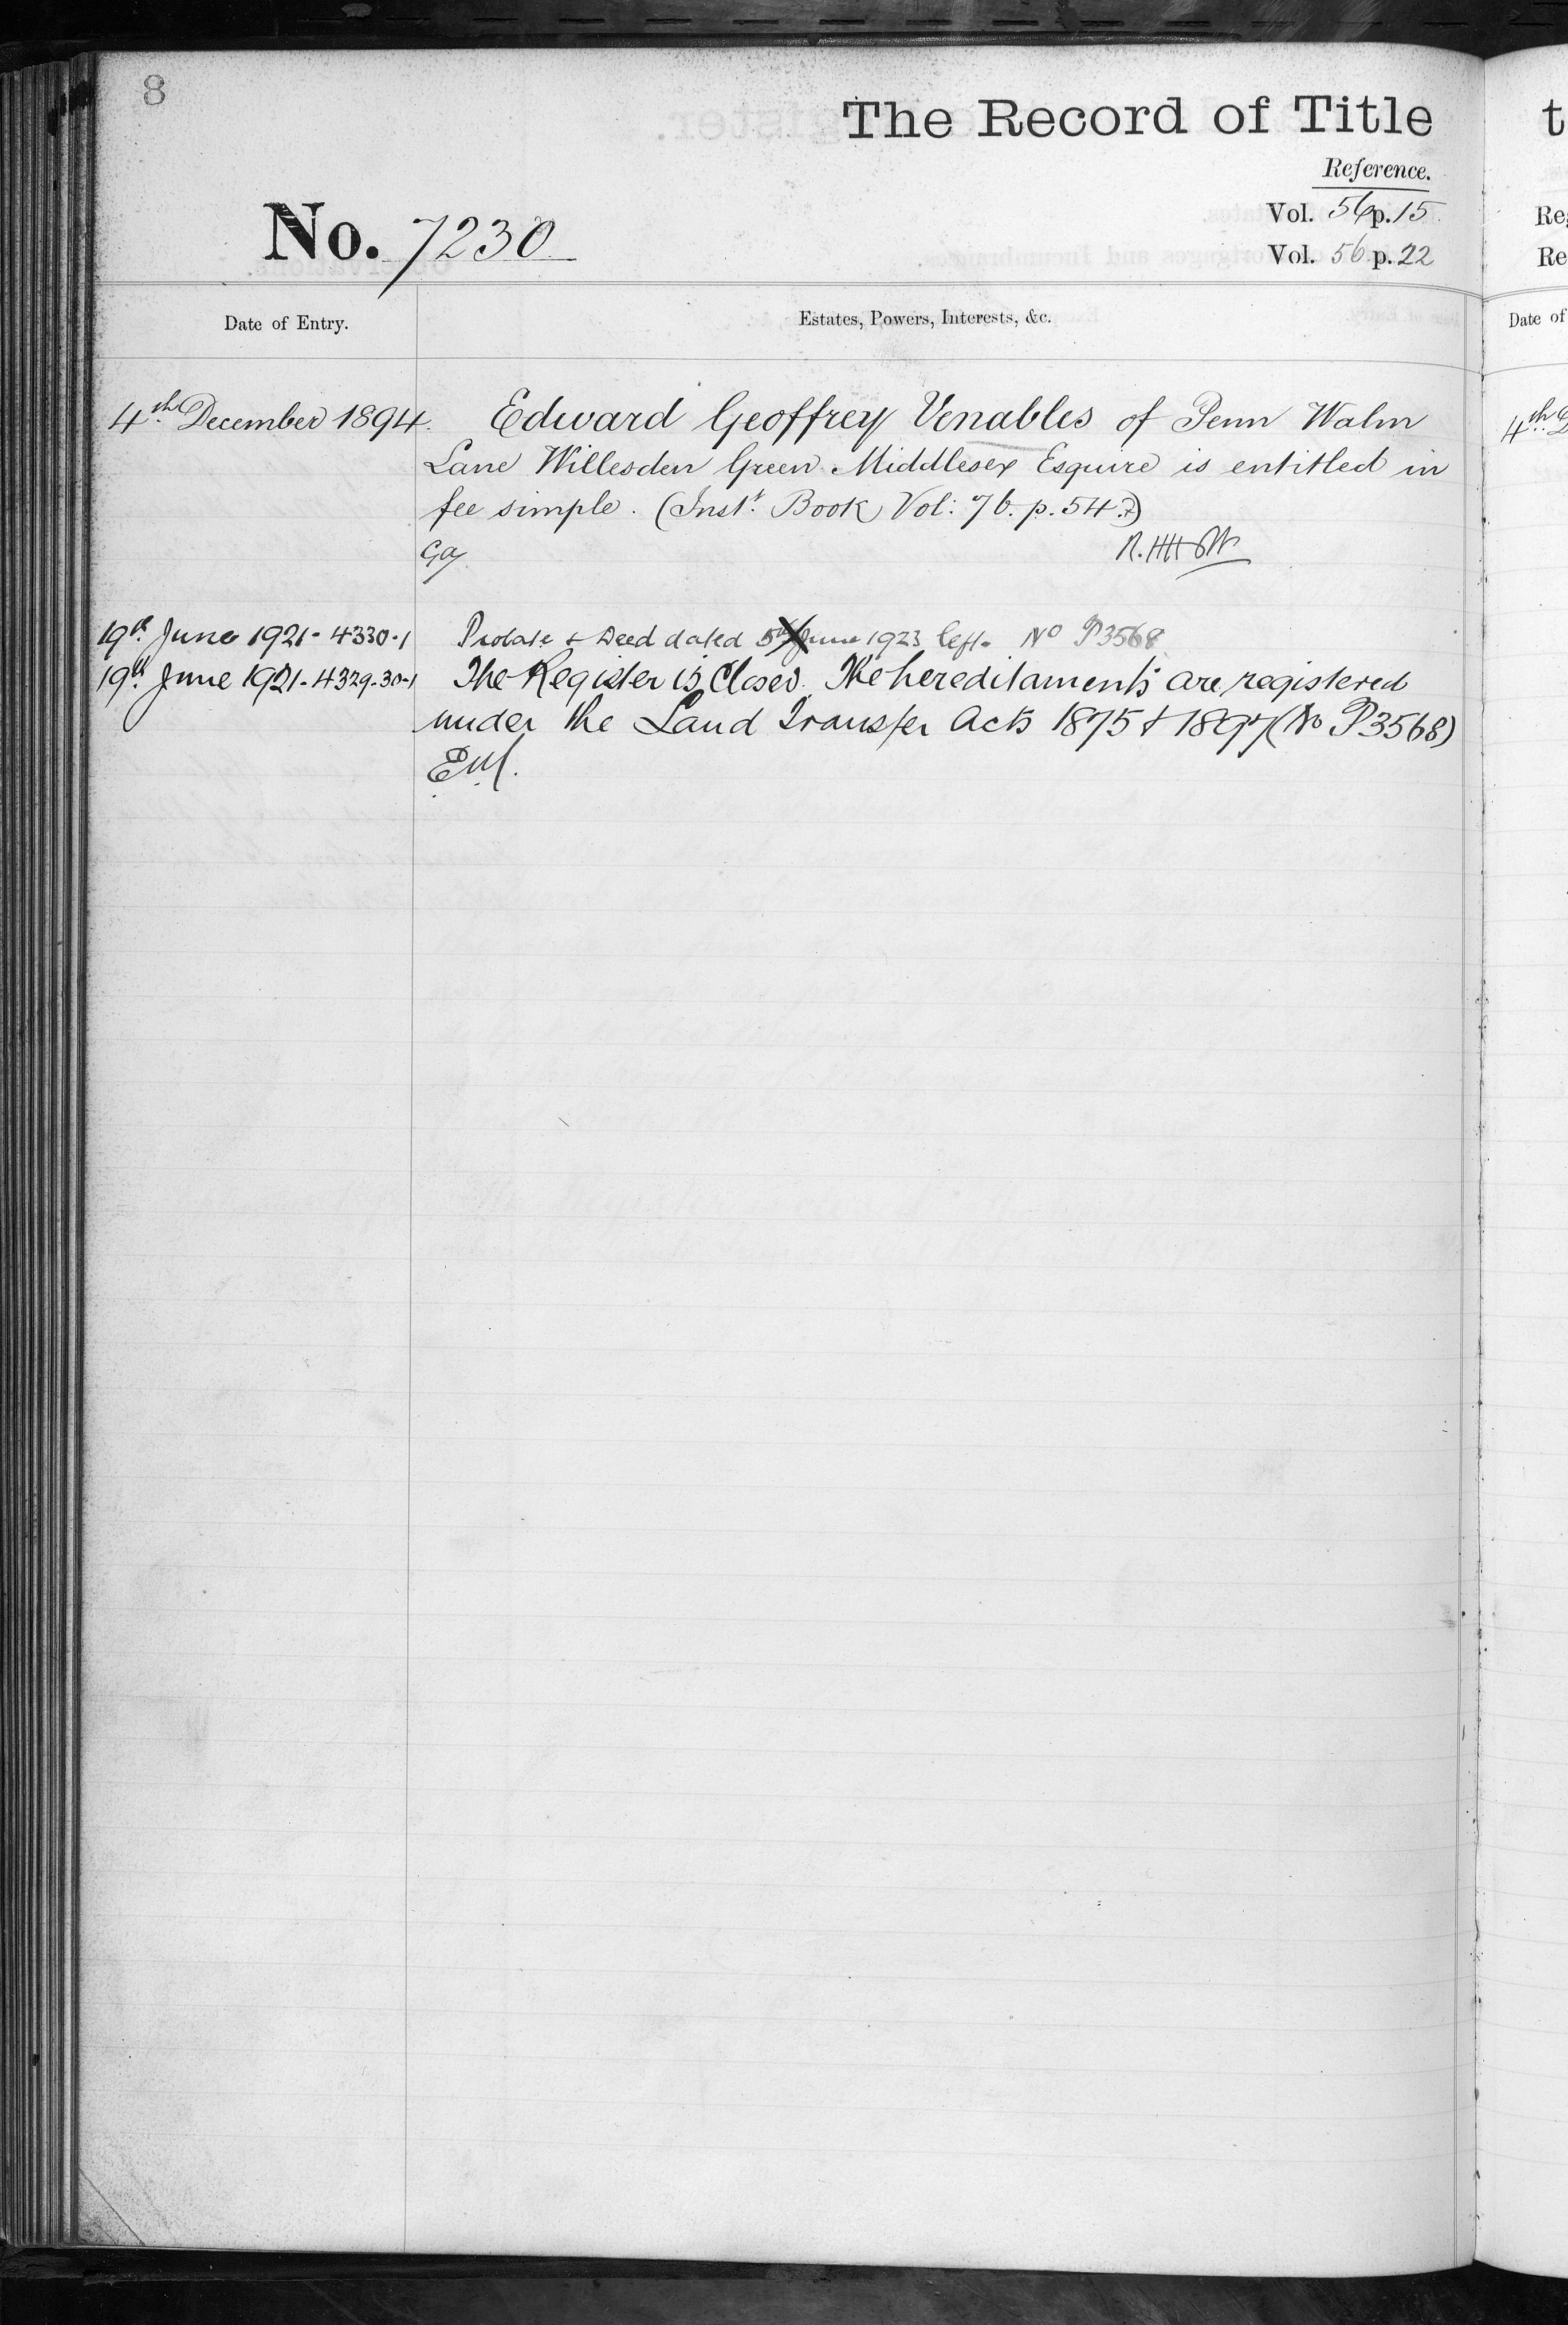 8
The Record of Title
Reference.
No. 7230
Vol. 56 p. 15
Vol. 56 p. 22
Date of Entry.
Estates, Powers, Interests, &c.
4th December 1894. Edward Geoffrey Venables of Penn Walm
Lane Willesden Green Middlesex Esquire is entitled in
fee simple. (Inst. Book Vol: 76. p. 547)
19th June 1921 - 4330-1 Probate & Deed dated 5th June 1923 left. No P3568
19th June 1921 - 4329-30-1 The Register is Closed. The hereditaments are registered
under the Land Transfer Acts 1875 & 1897 (No P3568)
t
Re
Re
Date of
4th D